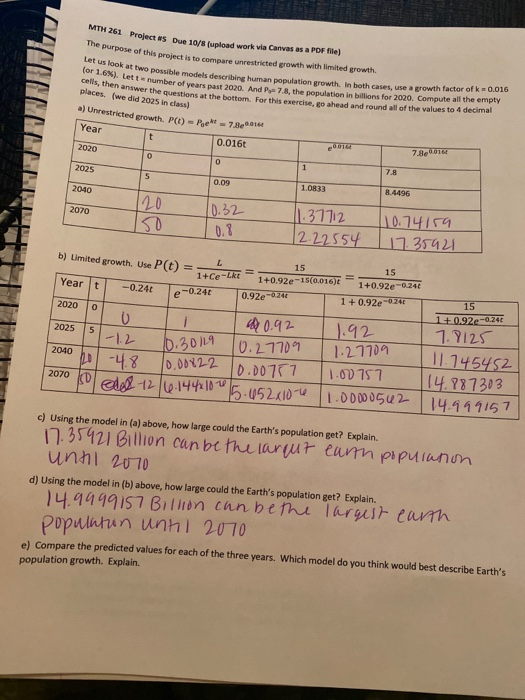 MTH 261 Project #5 Due 10/8 (upload work via Canvas as a PDF file)
The purpose of this project is to compare unrestricted growth with limited growth.
Let us look at two possible models describing human population growth. In both cases, use a growth factor of k = 0.016
(or 1.6%). Let t = number of years past 2020. And P₀= 7.8, the population in billions for 2020. Compute all the empty
cells, then answer the questions at the bottom. For this exercise, go ahead and round all of the values to 4 decimal
places. (we did 2025 in class)
a) Unrestricted growth. P(t) = P₀e^kt = 7.8e^0.016t
Year t 0.016t e^0.016t 7.8e^0.016t
2020 0 0 1 7.8
2025 5 0.09 1.0833 8.4496
2040 20 0.32 1.37712 10.74159
2070 50 0.8 2.22554 17.35921
b) Limited growth. Use P(t) = L/(1+Ce^-Lkt) = 15/(1+0.92e^-15(0.016)t) = 15/(1+0.92e^-0.24t)
Year t -0.24t e^-0.24t 0.92e^-0.24t 1 + 0.92e^-0.24t 15/(1+0.92e^-0.24t)
2020 0 0 1 0.92 1.92 7.8125
2025 5 -1.2 0.30119 0.27709 1.27709 11.745452
2040 20 -4.8 0.00822 0.00757 1.00757 14.887303
2070 50 -12 6.144x10^-6 5.652x10^-6 1.00000562 14.999157
c) Using the model in (a) above, how large could the Earth's population get? Explain.
17.35921 Billion can be the largest earth population
until 2070
d) Using the model in (b) above, how large could the Earth's population get? Explain.
14.9999157 Billion can be the largest earth
population until 2070
e) Compare the predicted values for each of the three years. Which model do you think would best describe Earth's
population growth. Explain.